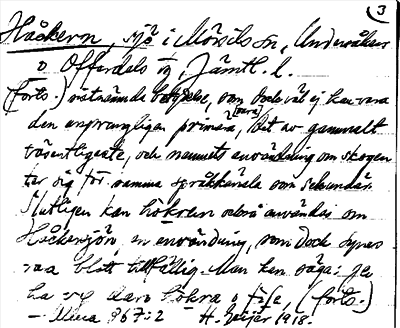 3
Håckern, sjö i Mörsils sn, Undersåkers
o Offerdals tg, Jämtl. l.
(forts.) nätnämda betydelse, som dock väl ej kan vara
den ursprungligen primära, bet av gammalt
väsentligaste, och namnets användning om skogen
ter sig för samma språkkänsla som sekundär.
Slutligen kan hökren också användas om
Håckersjön, en användning, som dock synes
vara blott tillfällig. Man kan säga: 
ha vg dära hökra o, (forts.)
967:2 H. Geijer 1918.